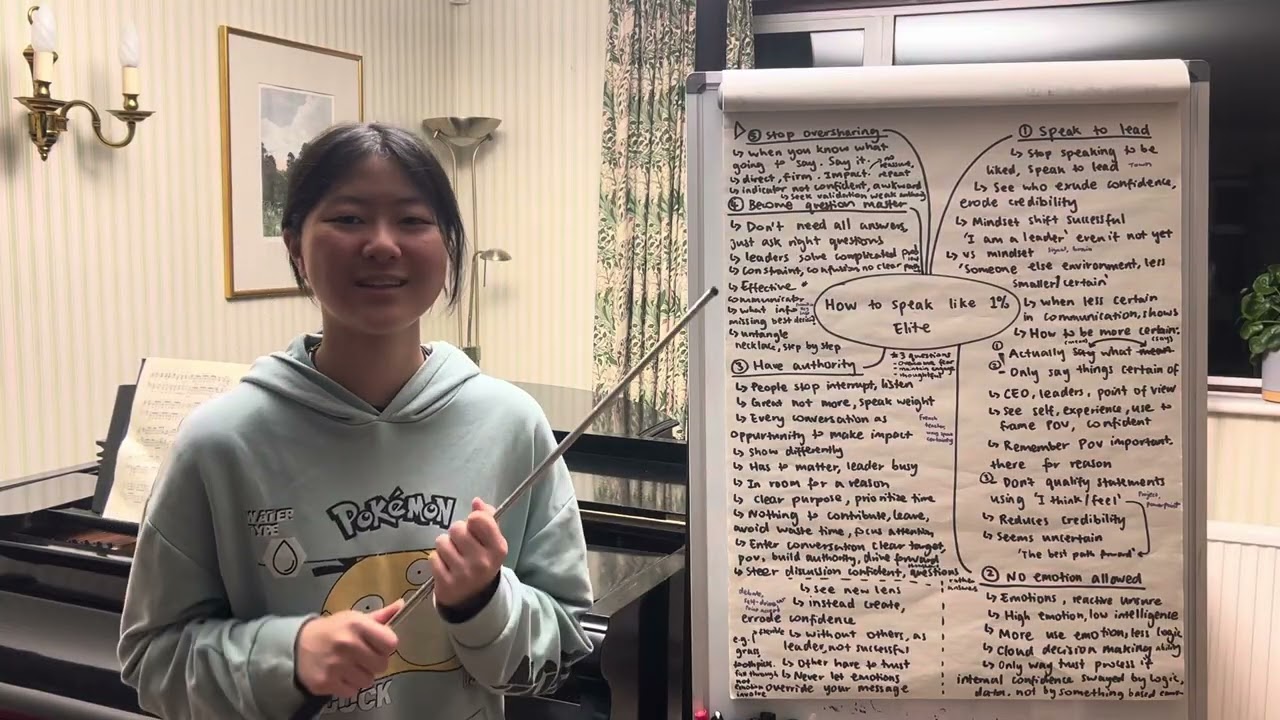 How to speak like 1%
Elite
① Speak to lead
↳ Stop speaking to be
liked, speak to lead
Town
↳ See who exude confidence,
erode credibility
↳ Mindset shift successful
'I am a leader' even if not yet
↳ vs mindset
'someone else environment, less
smaller/certain'
↳ when less certain
in communication, shows
↳ How to be more certain:
(mean) (says)
① Actually say what mean
② Only say things certain of
↳ CEO, leaders, point of view
↳ See self, experience, use to
frame POV, confident
↳ Remember POV important.
there for reason
③ Don't qualify statements
using 'I think/feel'
Project,
powerpoint
↳ Reduces credibility
↳ Seems uncertain
'The best path forward'
② No emotion allowed
↳ Emotions, reactive unsure
↳ High emotion, low intelligence
↳ More use emotion, less logic
↳ Cloud decision making ability
↳ Only way trust process if
internal confidence swayed by logic,
data, not by something based
↳ see new lens
↳ instead create,
errode confidence
↳ without others, as
leader, not successful
↳ Other have to trust
↳ Never let emotions
override your message
debate,
e.g.
grass
toothpick
not
emotion
③ Have authority
↳ People stop interrupt, listen
↳ Great not more, speak weight
↳ Every conversation as
oppurtunity to make impact
↳ show differently
↳ Has to matter, leader busy
↳ In room for a reason
↳ Clear purpose, prioritize time
↳ Nothing to contribute, leave,
avoid waste time, focus attention
↳ Enter conversation clear target,
pov, build authority, drive forward
↳ Steer discussion confident, questions
rather
answers
French
tension
certainty
④ Become question master
↳ Don't need all answers,
just ask right questions
↳ leaders solve complicated
↳ Constraint, confusion no clear
↳ Effective
communicator
↳ what info
missing best
↳ untangle
necklace, step by step
* 3 questions
- overcome fear
- maintain
- thoughtful
⑤ Stop oversharing
↳ when you know what
going to say. Say it.
no
reassure,
repeat
↳ direct, firm. Impact.
↳ indicator not confident, awkward
↳ seek validation weak
WATER
TYPE
POKéMON